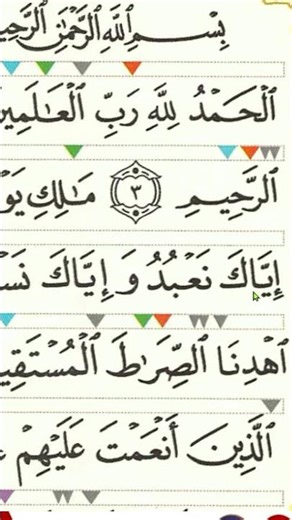 بِسْمِ اللَّهِ الرَّحْمَٰنِ الرَّحِي
الْحَمْدُ لِلَّهِ رَبِّ الْعَالَمِي
الرَّحِيمِ ٣ مَالِكِ يَوْ
إِيَّاكَ نَعْبُدُ وَإِيَّاكَ نَسْ
اهْدِنَا الصِّرَاطَ الْمُسْتَقِي
الَّذِينَ أَنْعَمْتَ عَلَيْهِمْ